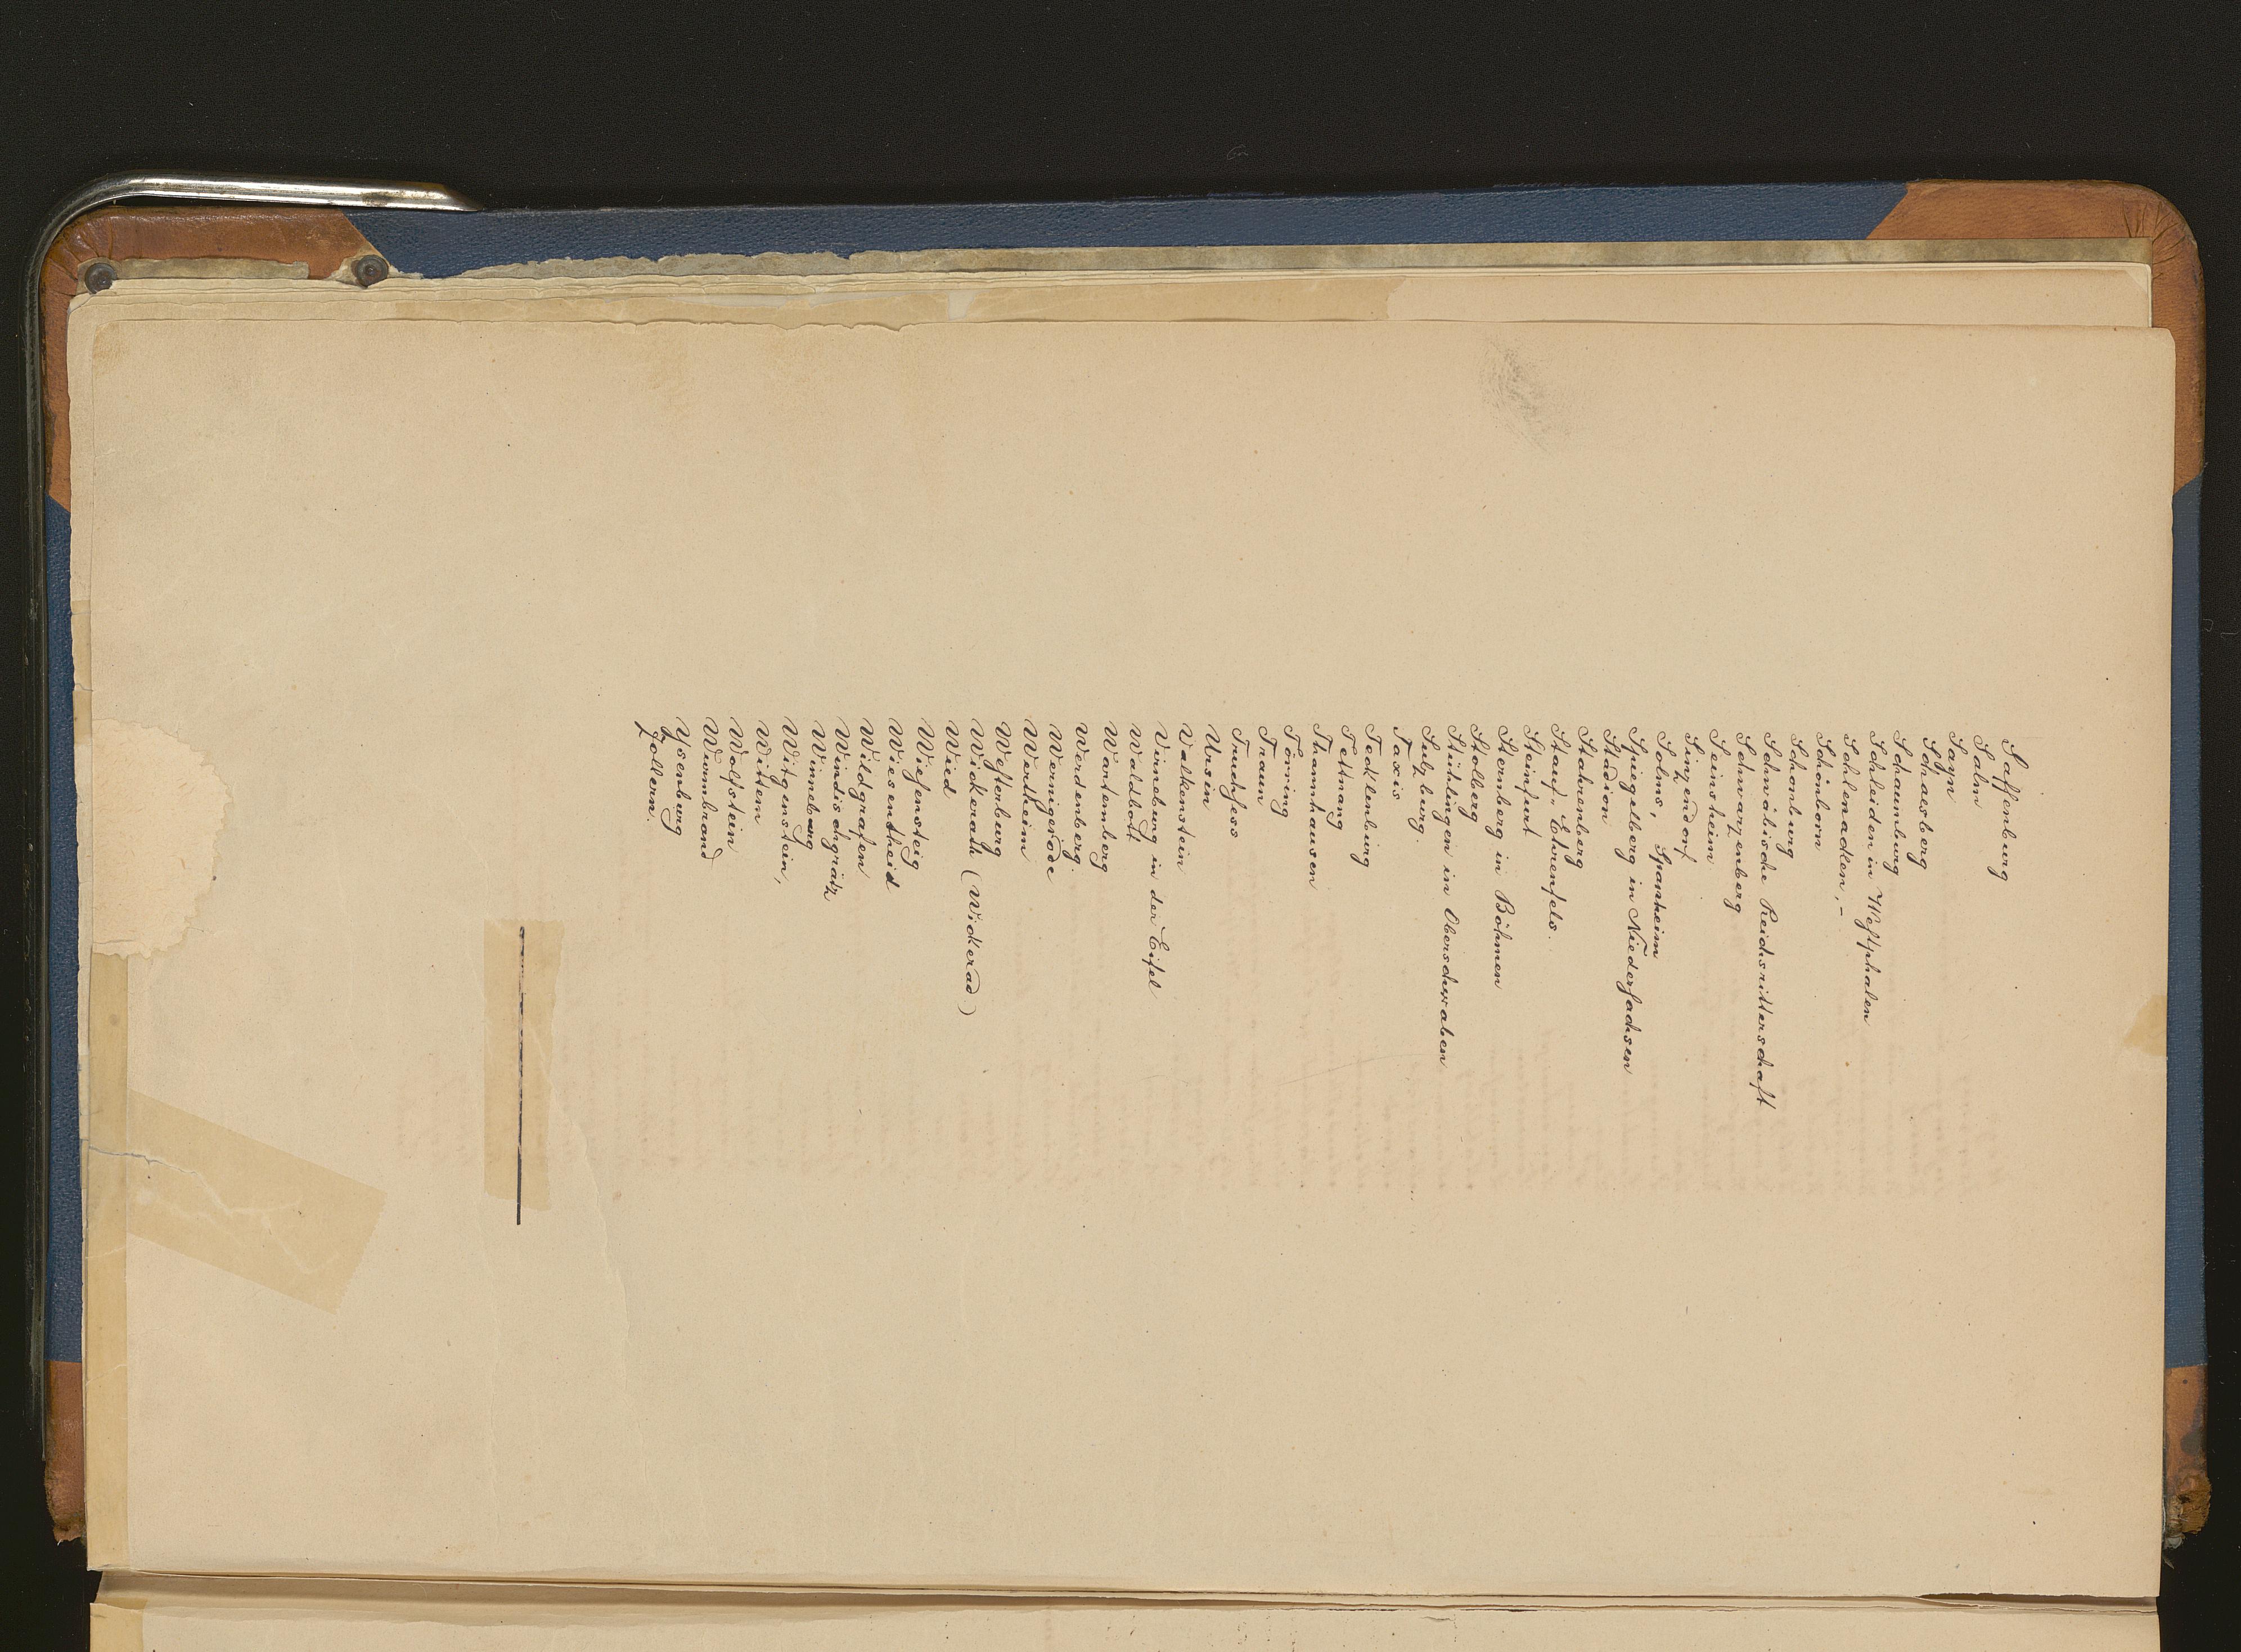 Saffenburg
Salm
Sayn
Schaesberg
Schaumburg
Schleiden in Westphalen
Schlenacken,-
Schönborn
Schonburg
Schwäbische Reichsritterschaft
Schwarzenberg
Seinsheim
Sinzendorf
Solms, Spanheim
Spiegelberg in Niedersachsen
Stadion
Stahrenberg
Stauf-Ehrenfels.
Steinfurt
Sternberg in Böhmen
Stolberg
Stühlingen in Oberschwaben
Sulzburg.
Taxis
Tecklenburg
Tettnang
Thannhausen
Törring
Traun
Truchsess
Ursin
Valkenstein
Virneburg in der Eifel
Waldbott
Wartenberg
Werdemberg.
Wernigerode
Wertheim
Westerburg
Wickerath (Wickerad)
Wied
Wiesensteig
Wiesentheid
Wildgrafen
Windischgrätz
Winneburg
Witgenstein,
Wittem
Wolfstein
Wurmbrand
Ysenburg
Zollern.